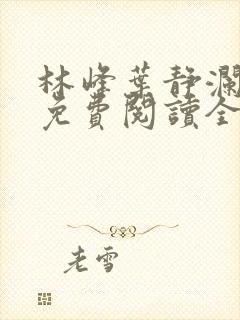 林峰葉静瀾
免費閱讀全
老雪